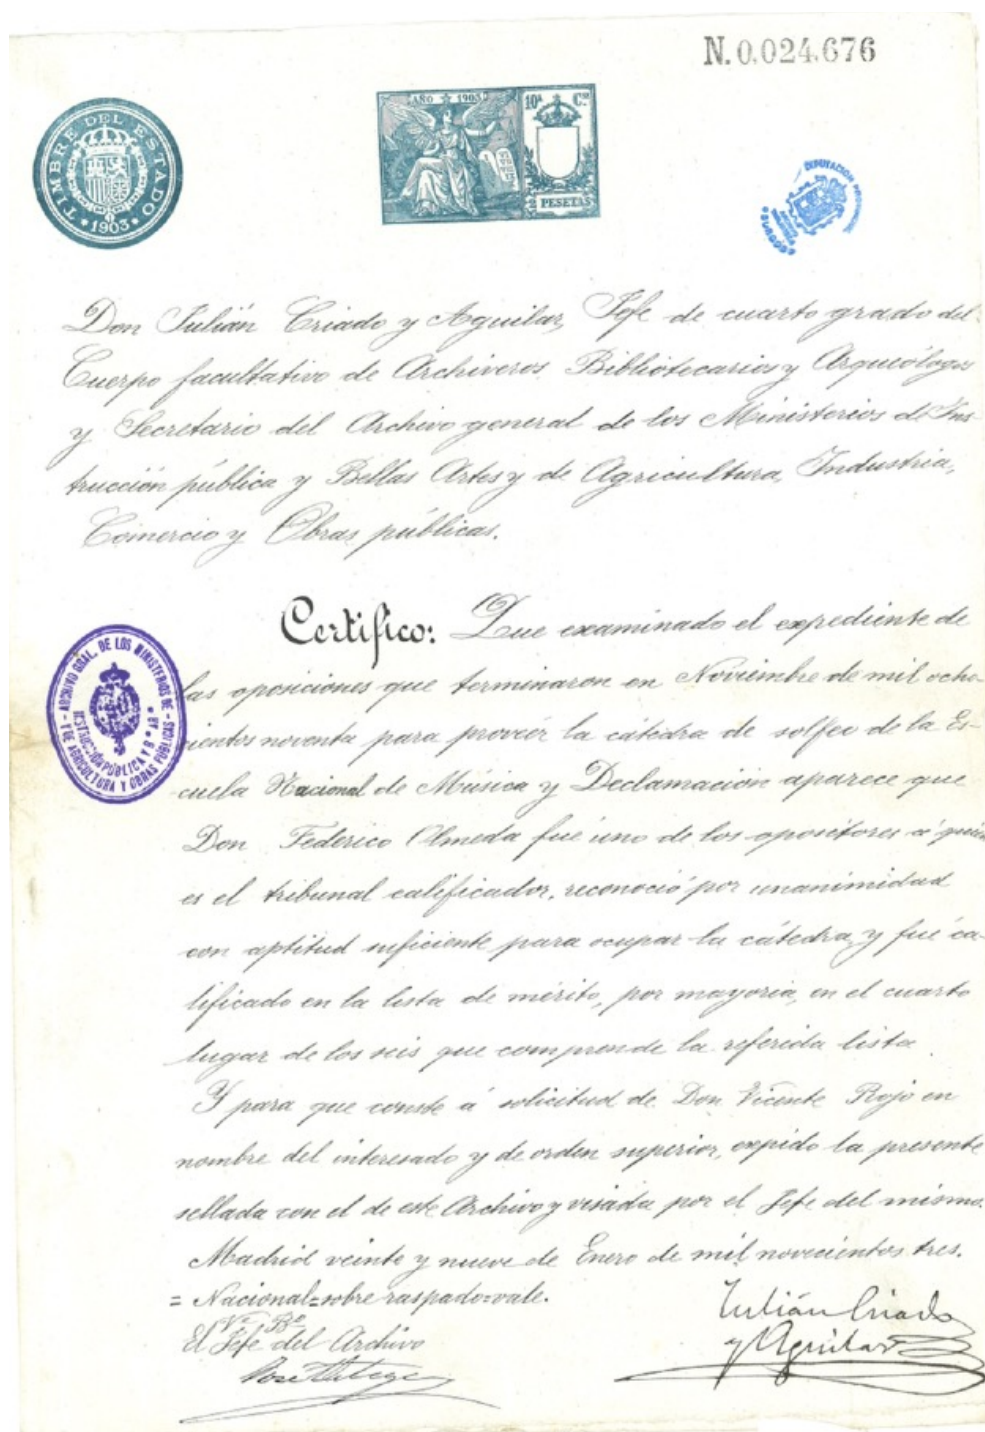 N. 0,024,676
TIMBRE DEL ESTADO
1903
AÑO 1903
10ª Cˢᵉ
2 PESETAS
DIPUTACION PROVINCIAL
BURGOS
Don Julián Criado y Aguilar, Jefe de cuarto grado del
Cuerpo facultativo de Archiveros Bibliotecarios y Arqueólogos
y Secretario del Archivo general de los Ministerios de Ins
trucción pública y Bellas Artes y de Agricultura, Industria,
Comercio y Obras públicas.
Certifico: Que examinado el expediente de
las oposiciones que terminaron en Noviembre de mil ocho-
cientos noventa para proveér la cátedra de solfeo de la Es-
cuela Nacional de Música y Declamación aparece que
Don Federico Olmeda fué uno de los opositores á quien
es el tribunal calificador, reconoció por unanimidad
con aptitud suficiente para ocupar la cátedra, y fué ca-
lificado en la lista de mérito, por mayoria, en el cuarto
lugar de los seis que comprende la referida lista
Y para que conste á solicitud de Don Vicente Rojo en
nombre del interesado y de orden superior, expido la presente
sellada con el de este Archivo y visada por el Jefe del mismo.
Madrid veinte y nueve de Enero de mil novecientos tres.
= Nacional=sobre raspado=vale.
Vº Bº
El Jefe del Archivo
Julián Criado
y Aguilar
ARCHIVO GRAL. DE LOS MINISTERIOS DE
INSTRUCCIÓN PÚBLICA Y B. AR.
Y DE AGRICULTURA Y OBRAS PÚBLICAS